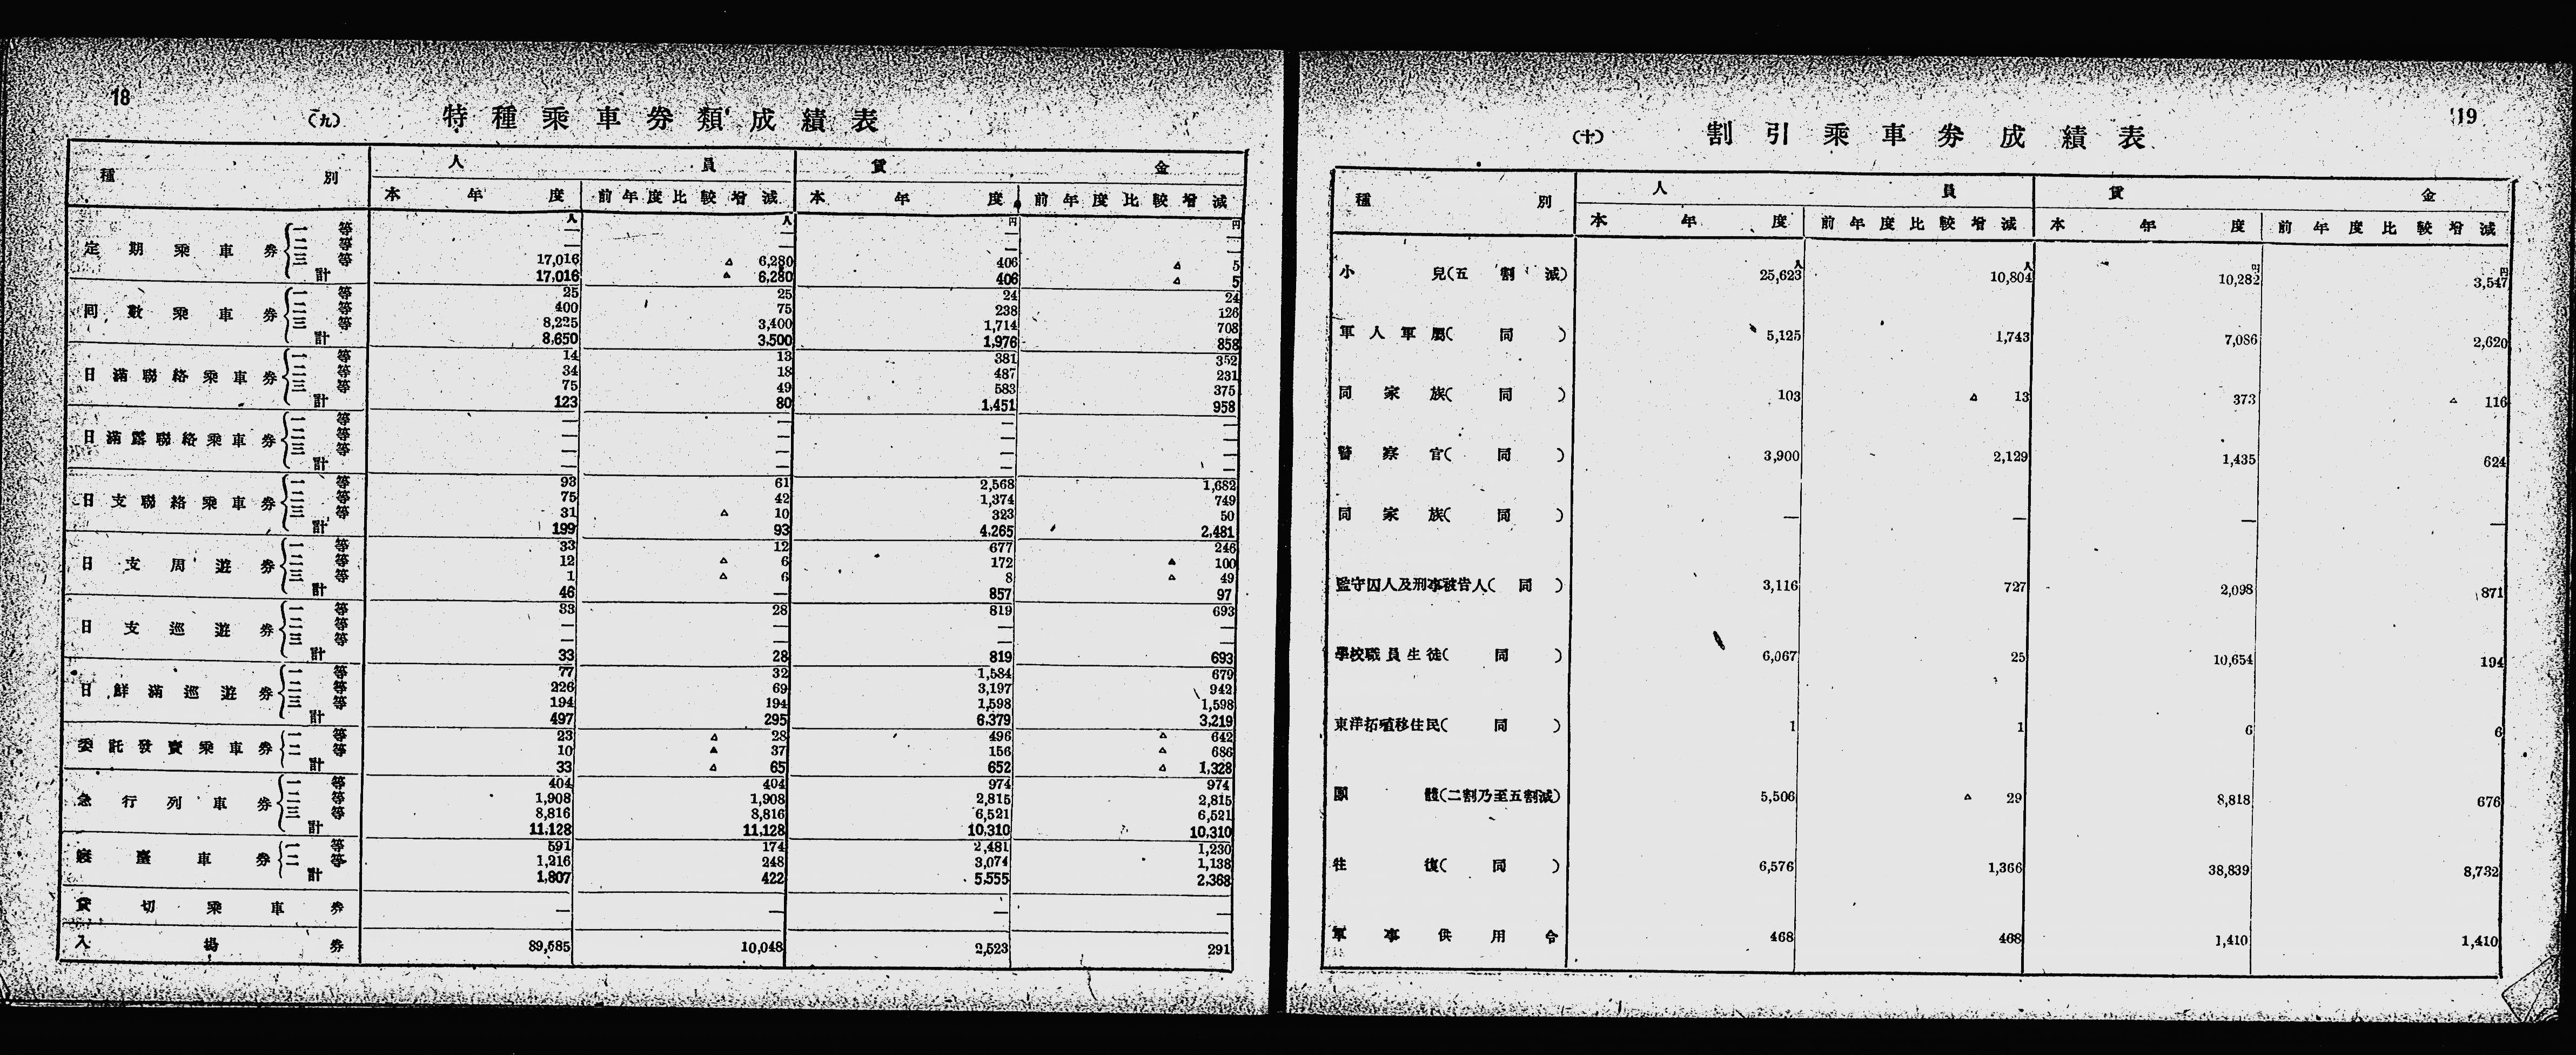 18
(九) 特種乘車券類成績表
種別 人員 賃金
本年度 前年度比較增減 本年度 前年度比較增減
人 人 円 円
定期乘車券 一等 — — — —
二等 — — — —
三等 17,016 △ 6,280 406 △ 5
計 17,016 △ 6,280 406 △ 5
回數乘車券 一等 25 25 24 24
二等 400 75 238 126
三等 8,225 3,400 1,714 708
計 8,650 3,500 1,976 858
日滿聯絡乘車券 一等 14 13 381 352
二等 34 18 487 231
三等 75 49 583 375
計 123 80 1,451 958
日滿露聯絡乘車券 一等 — — — —
二等 — — — —
三等 — — — —
計 — — — —
日支聯絡乘車券 一等 93 61 2,568 1,682
二等 75 42 1,374 749
三等 31 △ 10 323 50
計 199 93 4,265 2,481
日支周遊券 一等 33 12 677 246
二等 12 △ 6 172 △ 100
三等 1 △ 6 8 △ 49
計 46 — 857 97
日支巡遊券 一等 33 28 819 693
二等 — — — —
三等 — — — —
計 33 28 819 693
日鮮滿巡遊券 一等 77 32 1,584 679
二等 226 69 3,197 942
三等 194 194 1,598 1,598
計 497 295 6,379 3,219
委託發賣乘車券 一等 23 △ 28 496 △ 642
二等 10 △ 37 156 △ 686
計 33 △ 65 652 △ 1,328
急行列車券 一等 404 404 974 974
二等 1,908 1,908 2,815 2,815
三等 8,816 8,816 6,521 6,521
計 11,128 11,128 10,310 10,310
寢臺車券 一等 591 174 2,481 1,230
二等 1,216 248 3,074 1,138
計 1,807 422 5,555 2,368
貸切乘車券 — — — —
入場券 89,685 10,048 2,523 291
19
(十) 割引乘車券成績表
種別 人員 賃金
本年度 前年度比較增減 本年度 前年度比較增減
人 人 円 円
小兒(五割減) 25,623 10,804 10,282 3,547
軍人軍屬(同) 5,125 1,743 7,086 2,620
同家族(同) 103 △ 13 373 △ 116
警察官(同) 3,900 2,129 1,435 624
同家族(同) — — — —
監守囚人及刑事被告人(同) 3,116 727 2,098 871
學校職員生徒(同) 6,067 25 10,654 194
東洋拓殖移住民(同) 1 1 6 6
團體(二割乃至五割減) 5,506 △ 29 8,818 676
往復(同) 6,576 1,366 38,839 8,732
軍事供用令 468 468 1,410 1,410